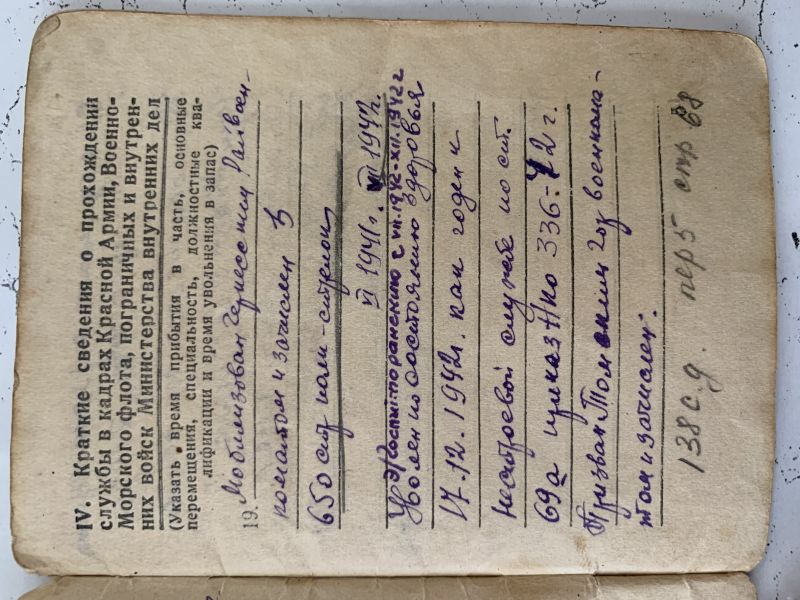 IV. Краткие сведения о прохождении
службы в кадрах Красной Армии, Военно-
Морского флота, пограничных и внутрен-
них войск Министерства внутренних дел
(Указать время прибытия в часть, основные
перемещения, специальность, должностные ква-
лификации и время увольнения в запас)
19. Мобилизован Райвоен-
коматом и зачислен в
650 стр полк-стрелок
VI 1941г. VII 1942г.
Эв/госпит. по ранению с VII.1942-XII.1942г
Уволен по состоянию здоровья
17.12.1942г. как годен к
нестроевой службе по ст.
69а приказ Нко 336-42г.
Призван Томским гор военкома-
том и зачислен.
138 с.д. пер 5 стр 68